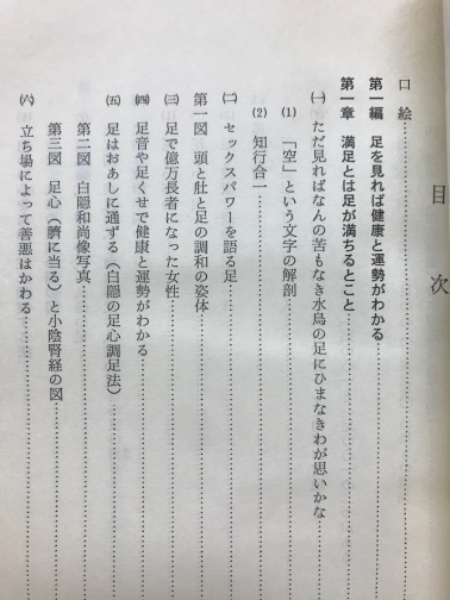 目次
口絵
第一編 足を見れば健康と運勢がわかる
第一章 満足とは足が満ちるとこと
㈠ ただ見ればなんの苦もなき水鳥の足にひまなきわが思いかな
(1) 「空」という文字の解剖
(2) 知行合一
㈡ セックスパワーを語る足
第一図 頭と肚と足の調和の姿体
㈢ 足で億万長者になった女性
㈣ 足音や足くせで健康と運勢がわかる
㈤ 足はおあしに通ずる（白隠の足心調足法）
第二図 白隠和尚像写真
第三図 足心（臍に当る）と小陰腎経の図
㈥ 立ち場によって善悪はかわる